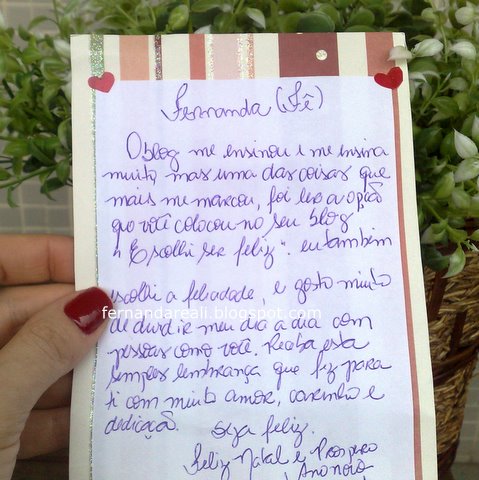 Fernanda (Fê)
O blog me ensinou e me ensina
muito, mas uma das coisas que
mais me marcou, foi ler a opção
que você colocou no seu blog
"Escolhi ser feliz". eu também
escolhi a felicidade, e gosto muito
fernandareali.blogspot.com
de dividir meu dia a dia com
pessoas como você. Receba esta
simples lembrança que fiz para
ti com muito amor, carinho e
dedicação. Seja feliz.
Feliz Natal e Prospero
Ano novo